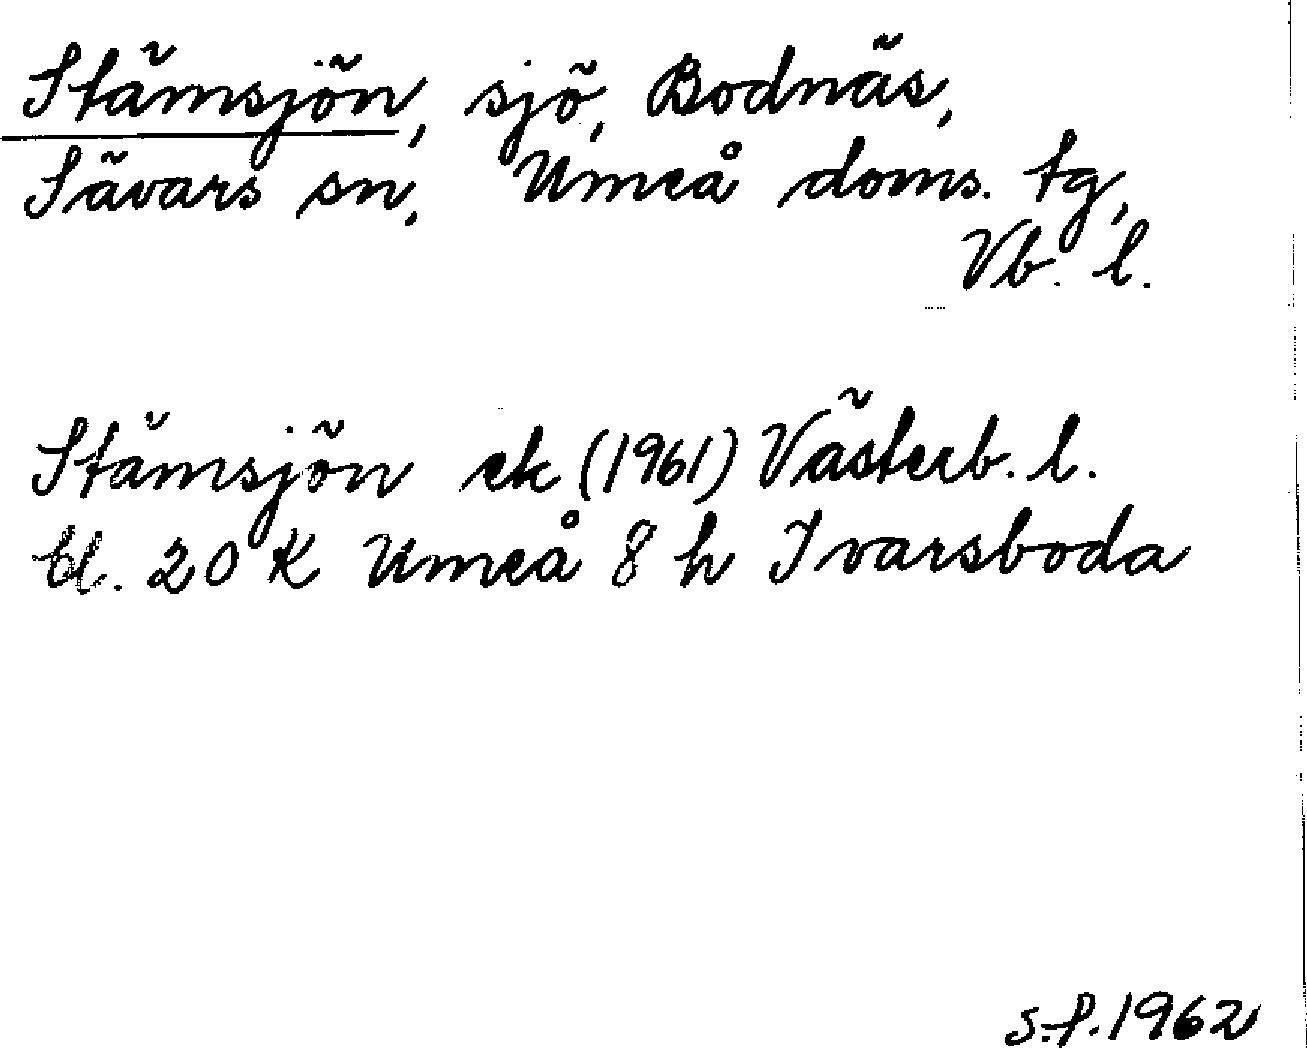 Stämsjön, sjö, Bodnäs,
Sävars sn, Umeå doms. tg,
Vb. l.
Stämsjön ek (1961) Västerb. l.
bl. 20 K Umeå 8 h Ivarsboda
s.f. 1962